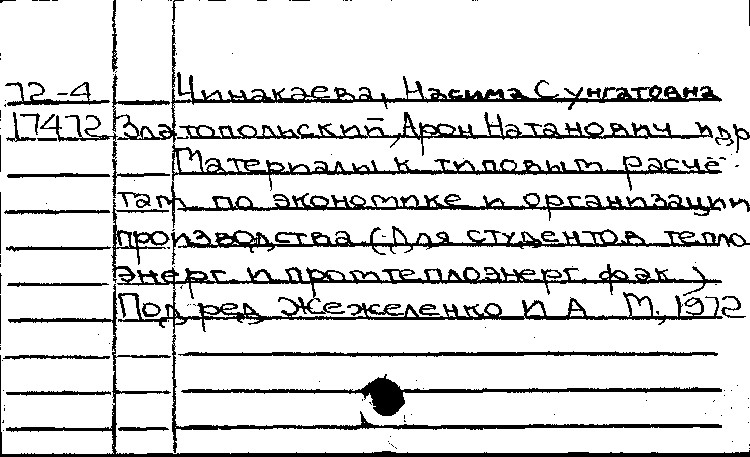 72-4 Чинакаева, Насима Сунгатовна
17472 Златопольский, Арон Натанович и др
Материалы к типовым расчё-
там по экономике и организации
производства. (Для студентов тепло
энерг. и промтеплоэнерг. фак.)
Под ред Жежеленко И А М, 1972